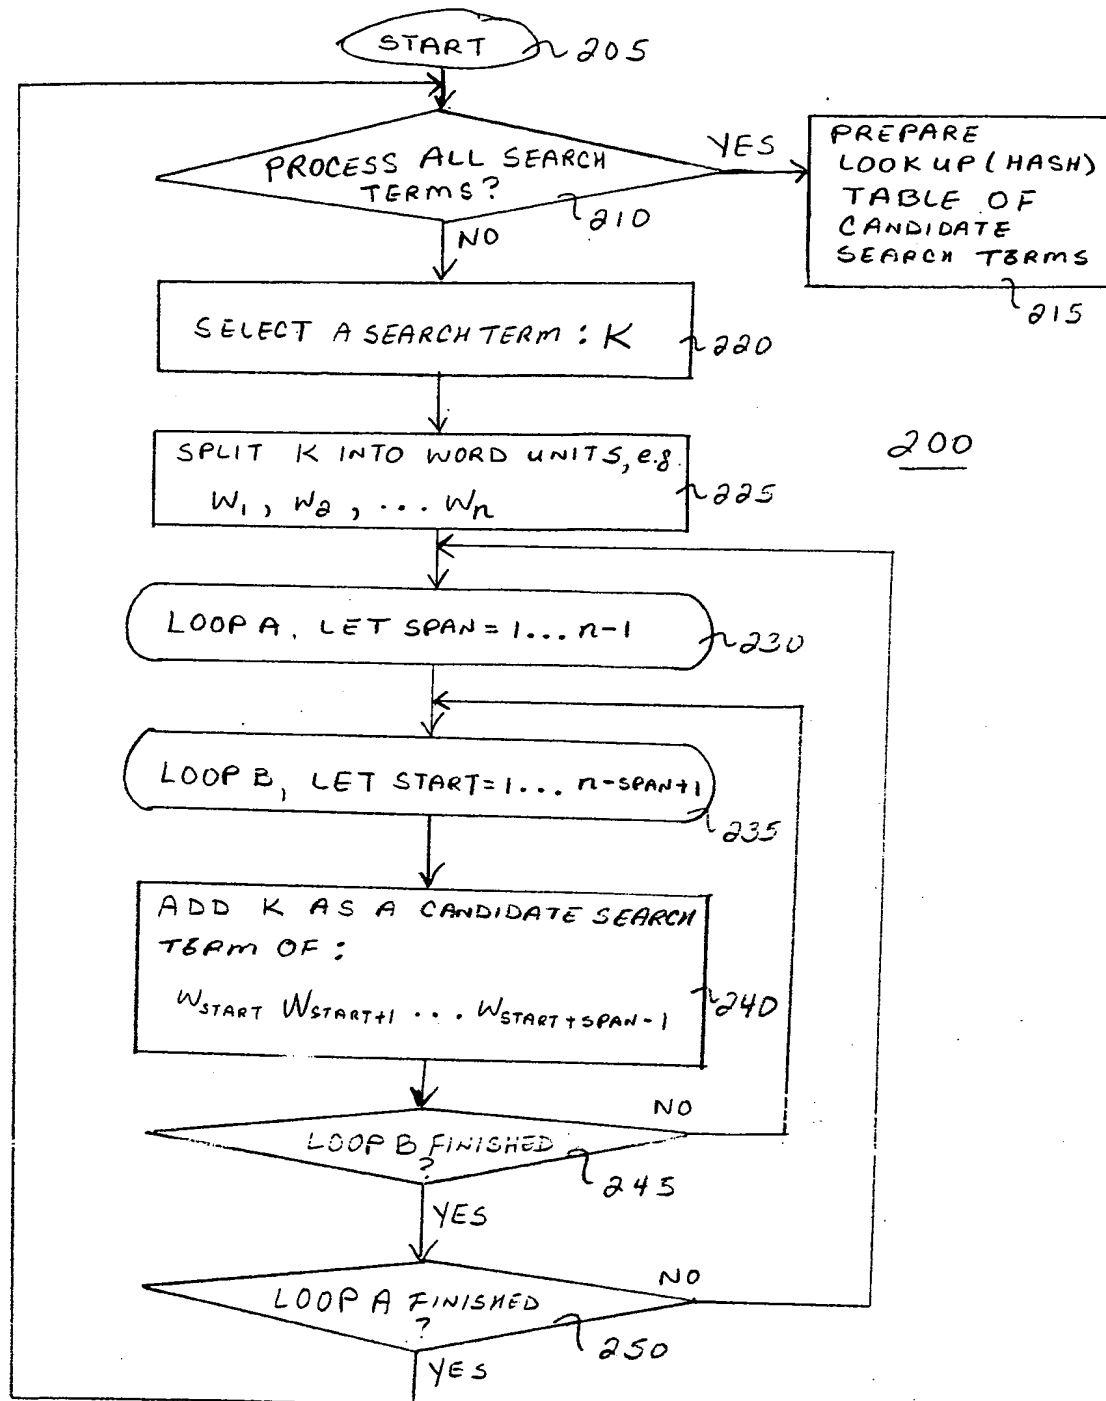 START
205
PROCESS ALL SEARCH
TERMS?
210
YES
PREPARE
LOOKUP (HASH)
TABLE OF
CANDIDATE
SEARCH TERMS
215
NO
SELECT A SEARCH TERM : K
220
SPLIT K INTO WORD UNITS, e.g.
W1, W2, ... Wn
225
200
LOOP A, LET SPAN = 1... n-1
230
LOOP B, LET START = 1... n-SPAN+1
235
ADD K AS A CANDIDATE SEARCH
TERM OF :
WSTART WSTART+1 ... WSTART+SPAN-1
240
NO
LOOP B FINISHED
?
245
YES
NO
LOOP A FINISHED
?
250
YES